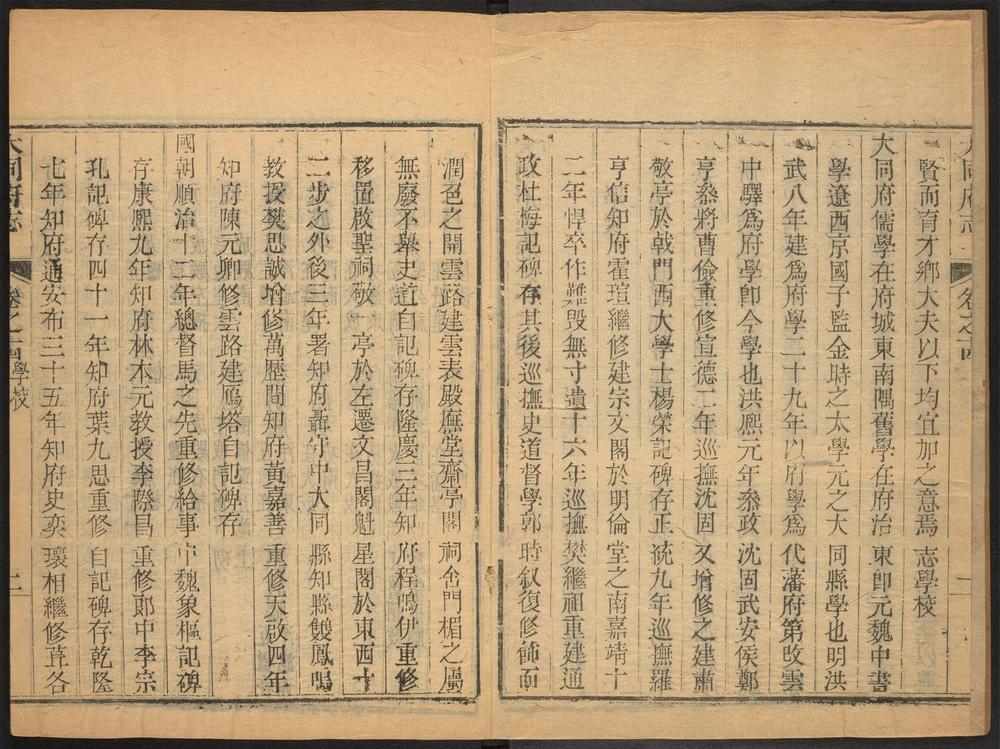 賢而育才鄉大夫以下均宜加之意焉志學校
大同府儒學在府城東南隅舊學在府治東即元魏中書
學遼西京國子監金時之太學元之大同縣學也明洪
武八年建爲府學二十九年以府學爲代藩府第改雲
中驛爲府學即今學也洪熙元年叅政沈固武安侯鄭
亨叅將曹儉重修宣德二年巡撫沈固又增修之建肅
敬亭於戟門西大學士楊榮記碑存正統九年巡撫羅
亨信知府霍瑄繼修建宗文閣於明倫堂之南嘉靖十
二年悍卒作難毀無寸遺十六年巡撫樊繼祖重建通
政杜梅記碑存其後巡撫史道督學郭時叙復修飾而
潤色之閒雲路建雲表殿廡堂齋亭閣祠舍門楣之屬
無廢不舉史道自記碑存隆慶三年知府程鳴伊重修
移置啟聖祠敬一亭於左遷文昌閣魁星閣於東西十
二步之外後三年署知府聶守中大同縣知縣雙鳳鳴
教授樊思誠增修萬歷間知府黃嘉善重修天啟四年
知府陳元卿修雲路建鴈塔自記碑存
國朝順治十二年總督馬之先重修給事中魏象樞記碑
存康熙九年知府林本元教授李際昌重修郎中李宗
孔記碑存四十一年知府葉九思重修自記碑存乾隆
七年知府通安布三十五年知府史奕瓌相繼修葺各
大同府志 卷之十四 學校 二